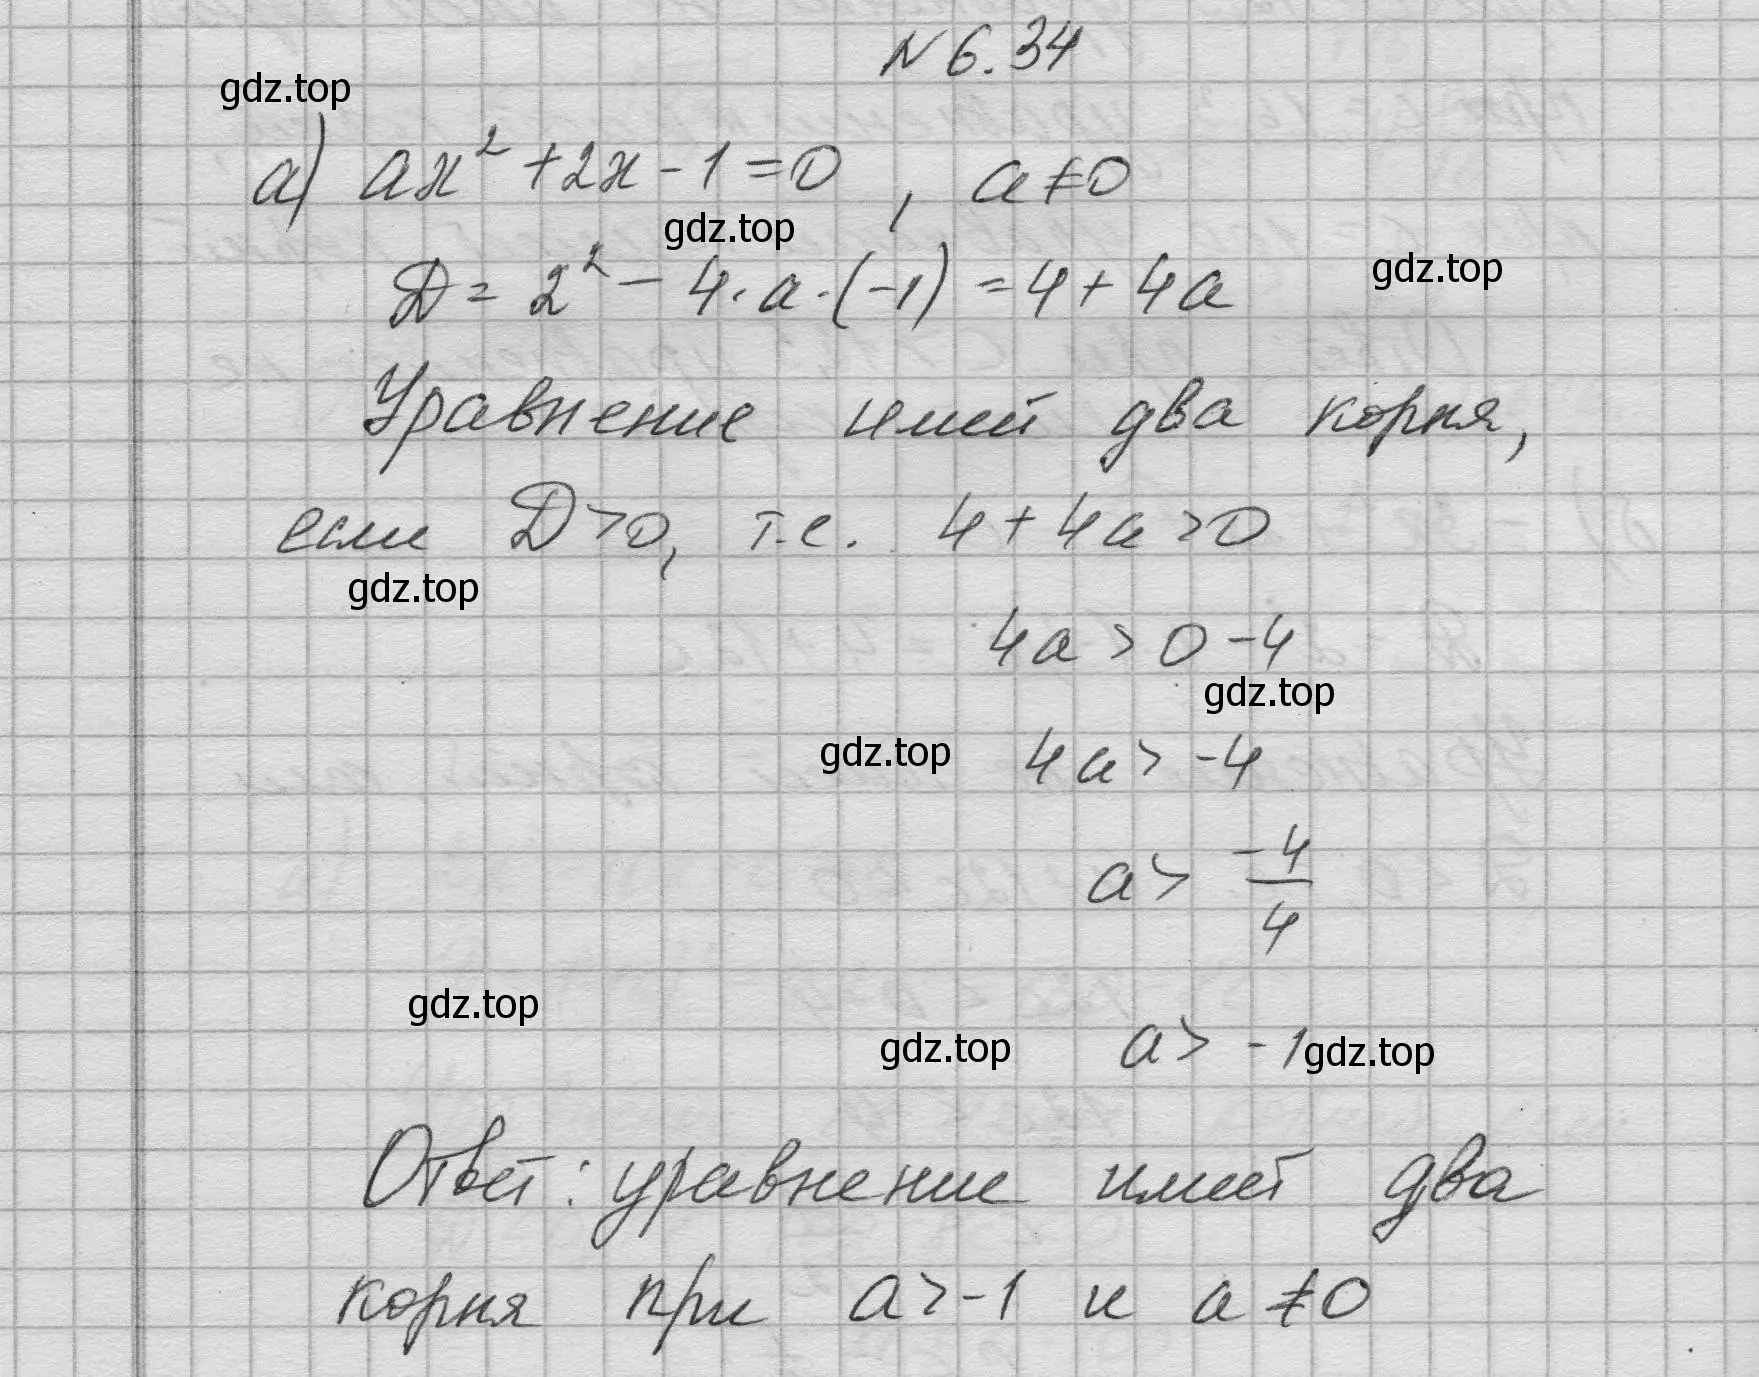 N 6.34
gdz.top
а) ax² + 2x - 1 = 0 , a ≠ 0
gdz.top
D = 2² - 4 · a · (-1) = 4 + 4a
gdz.top
Уравнение имеет два корня,
если D > 0, т.е. 4 + 4a > 0
gdz.top
4a > 0 - 4
gdz.top
gdz.top
4a > -4
a > -4/4
gdz.top
gdz.top
a > -1
gdz.top
Ответ: уравнение имеет два
корня при a > -1 и a ≠ 0